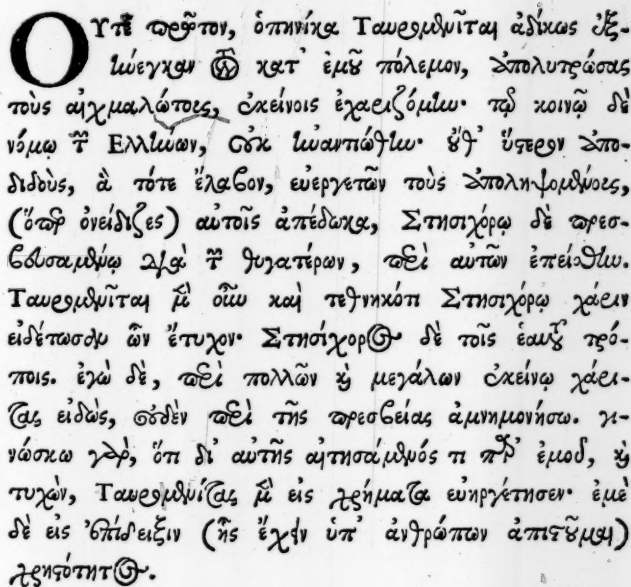 Οὔτε πρῶτον, ὁπηνίκα Ταυρομενῖται ἀδίκως ἐξ-
ήνεγκαν τὸν κατ' ἐμοῦ πόλεμον, ἀπολυτρώσας
τοὺς αἰχμαλώτοις, ἐκείνοις ἐχαριζόμην· τῷ κοινῷ δὲ
νόμῳ τῶν Ελλήνων, οὐκ ἠναντιώθην· οὔθ' ὕστερον ἀπο-
διδοὺς, ἃ τότε ἔλαβον, εὐεργετῶν τοὺς ἀποληψομένους,
(ὅπερ ὀνείδιζες) αὐτοῖς ἀπέδωκα, Στησιχόρῳ δὲ πρεσ-
βευσαμένῳ διὰ τῶν θυγατέρων, περὶ αὐτῶν ἐπείσθην.
Ταυρομενῖται μὲν οὖν καὶ τεθνηκότι Στησιχόρῳ χάριν
εἰδέτωσαν ὧν ἔτυχον· Στησίχορος δὲ τοῖς ἐμοῦ τρό-
ποις. ἐγὼ δὲ, περὶ πολλῶν καὶ μεγάλων ἐκείνῳ χάρι-
τας εἰδὼς, οὐδὲν περὶ τῆς πρεσβείας ἀμνημονήσω. γι-
νώσκω γὰρ, ὅτι δι' αὐτῆς αἰτησάμενός τι παρ' ἐμοῦ, καὶ
τυχὼν, Ταυρομενίτας μὲν εἰς χρήματα εὐηργέτησεν· ἐμὲ
δὲ εἰς ἐπίδειξιν (ἧς ἔχειν ὑπ' ἀνθρώπων ἀπιστοῦμαι)
χρηστότητος.